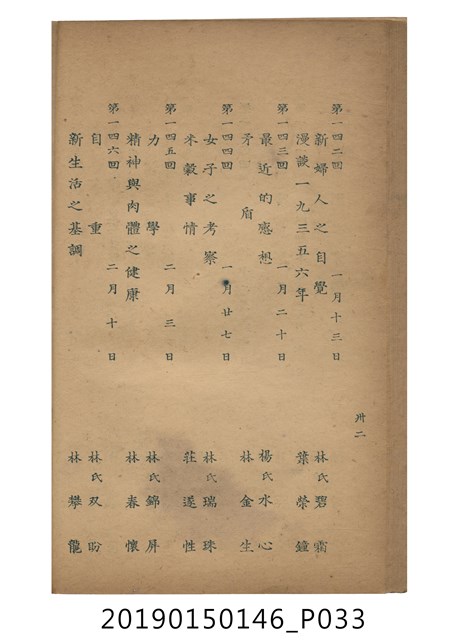 第一四二回 一月十三日
新婦人之自覺 林氏碧霜
漫談一九三五六年 葉榮鐘
第一四三回 一月二十日
最近的感想 楊氏水心
矛盾 林金生
第一四四回 一月廿七日
女子之考察 林氏瑞珠
米穀事情 莊遂性
第一四五回 二月三日
力學 林氏錦屏
精神與肉體之健康 林春懷
第一四六回 二月十日
自重 林氏双盼
新生活之基調 林攀龍
卅二
20190150146_P033